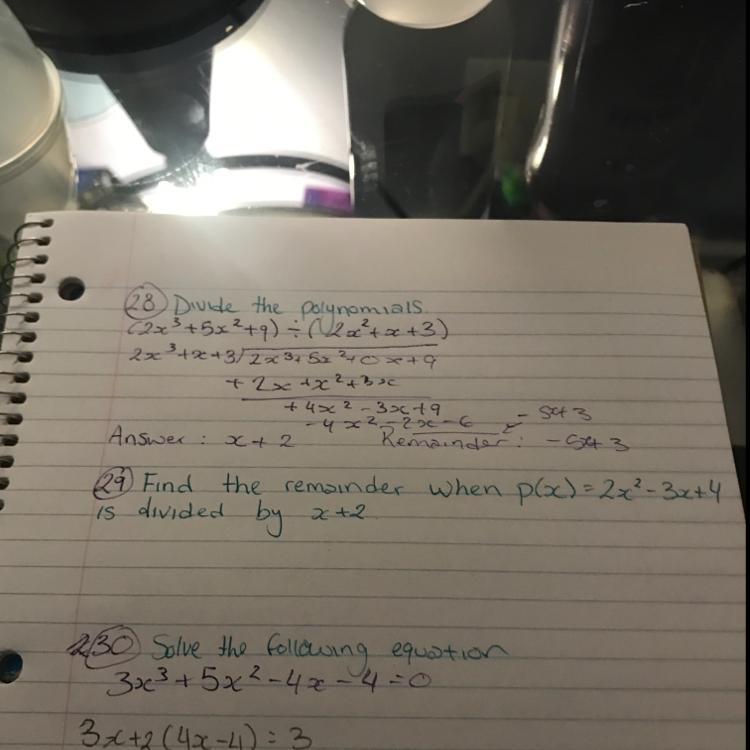 28 Divide the polynomials.
(2x³+5x²+9) ÷ (2x²+x+3)
2x³+x+3/2x³+5x²+0x+9
+ 2x+x²+3x
+4x²-3x+9
-4x²-2x-6 -5x+3
Answer: x+2 Remainder: -5x+3
29 Find the remainder when p(x)=2x²-3x+4
is divided by x+2
30 Solve the following equation
3x³+5x²-4x-4=0
3x+2(4x-4)=3